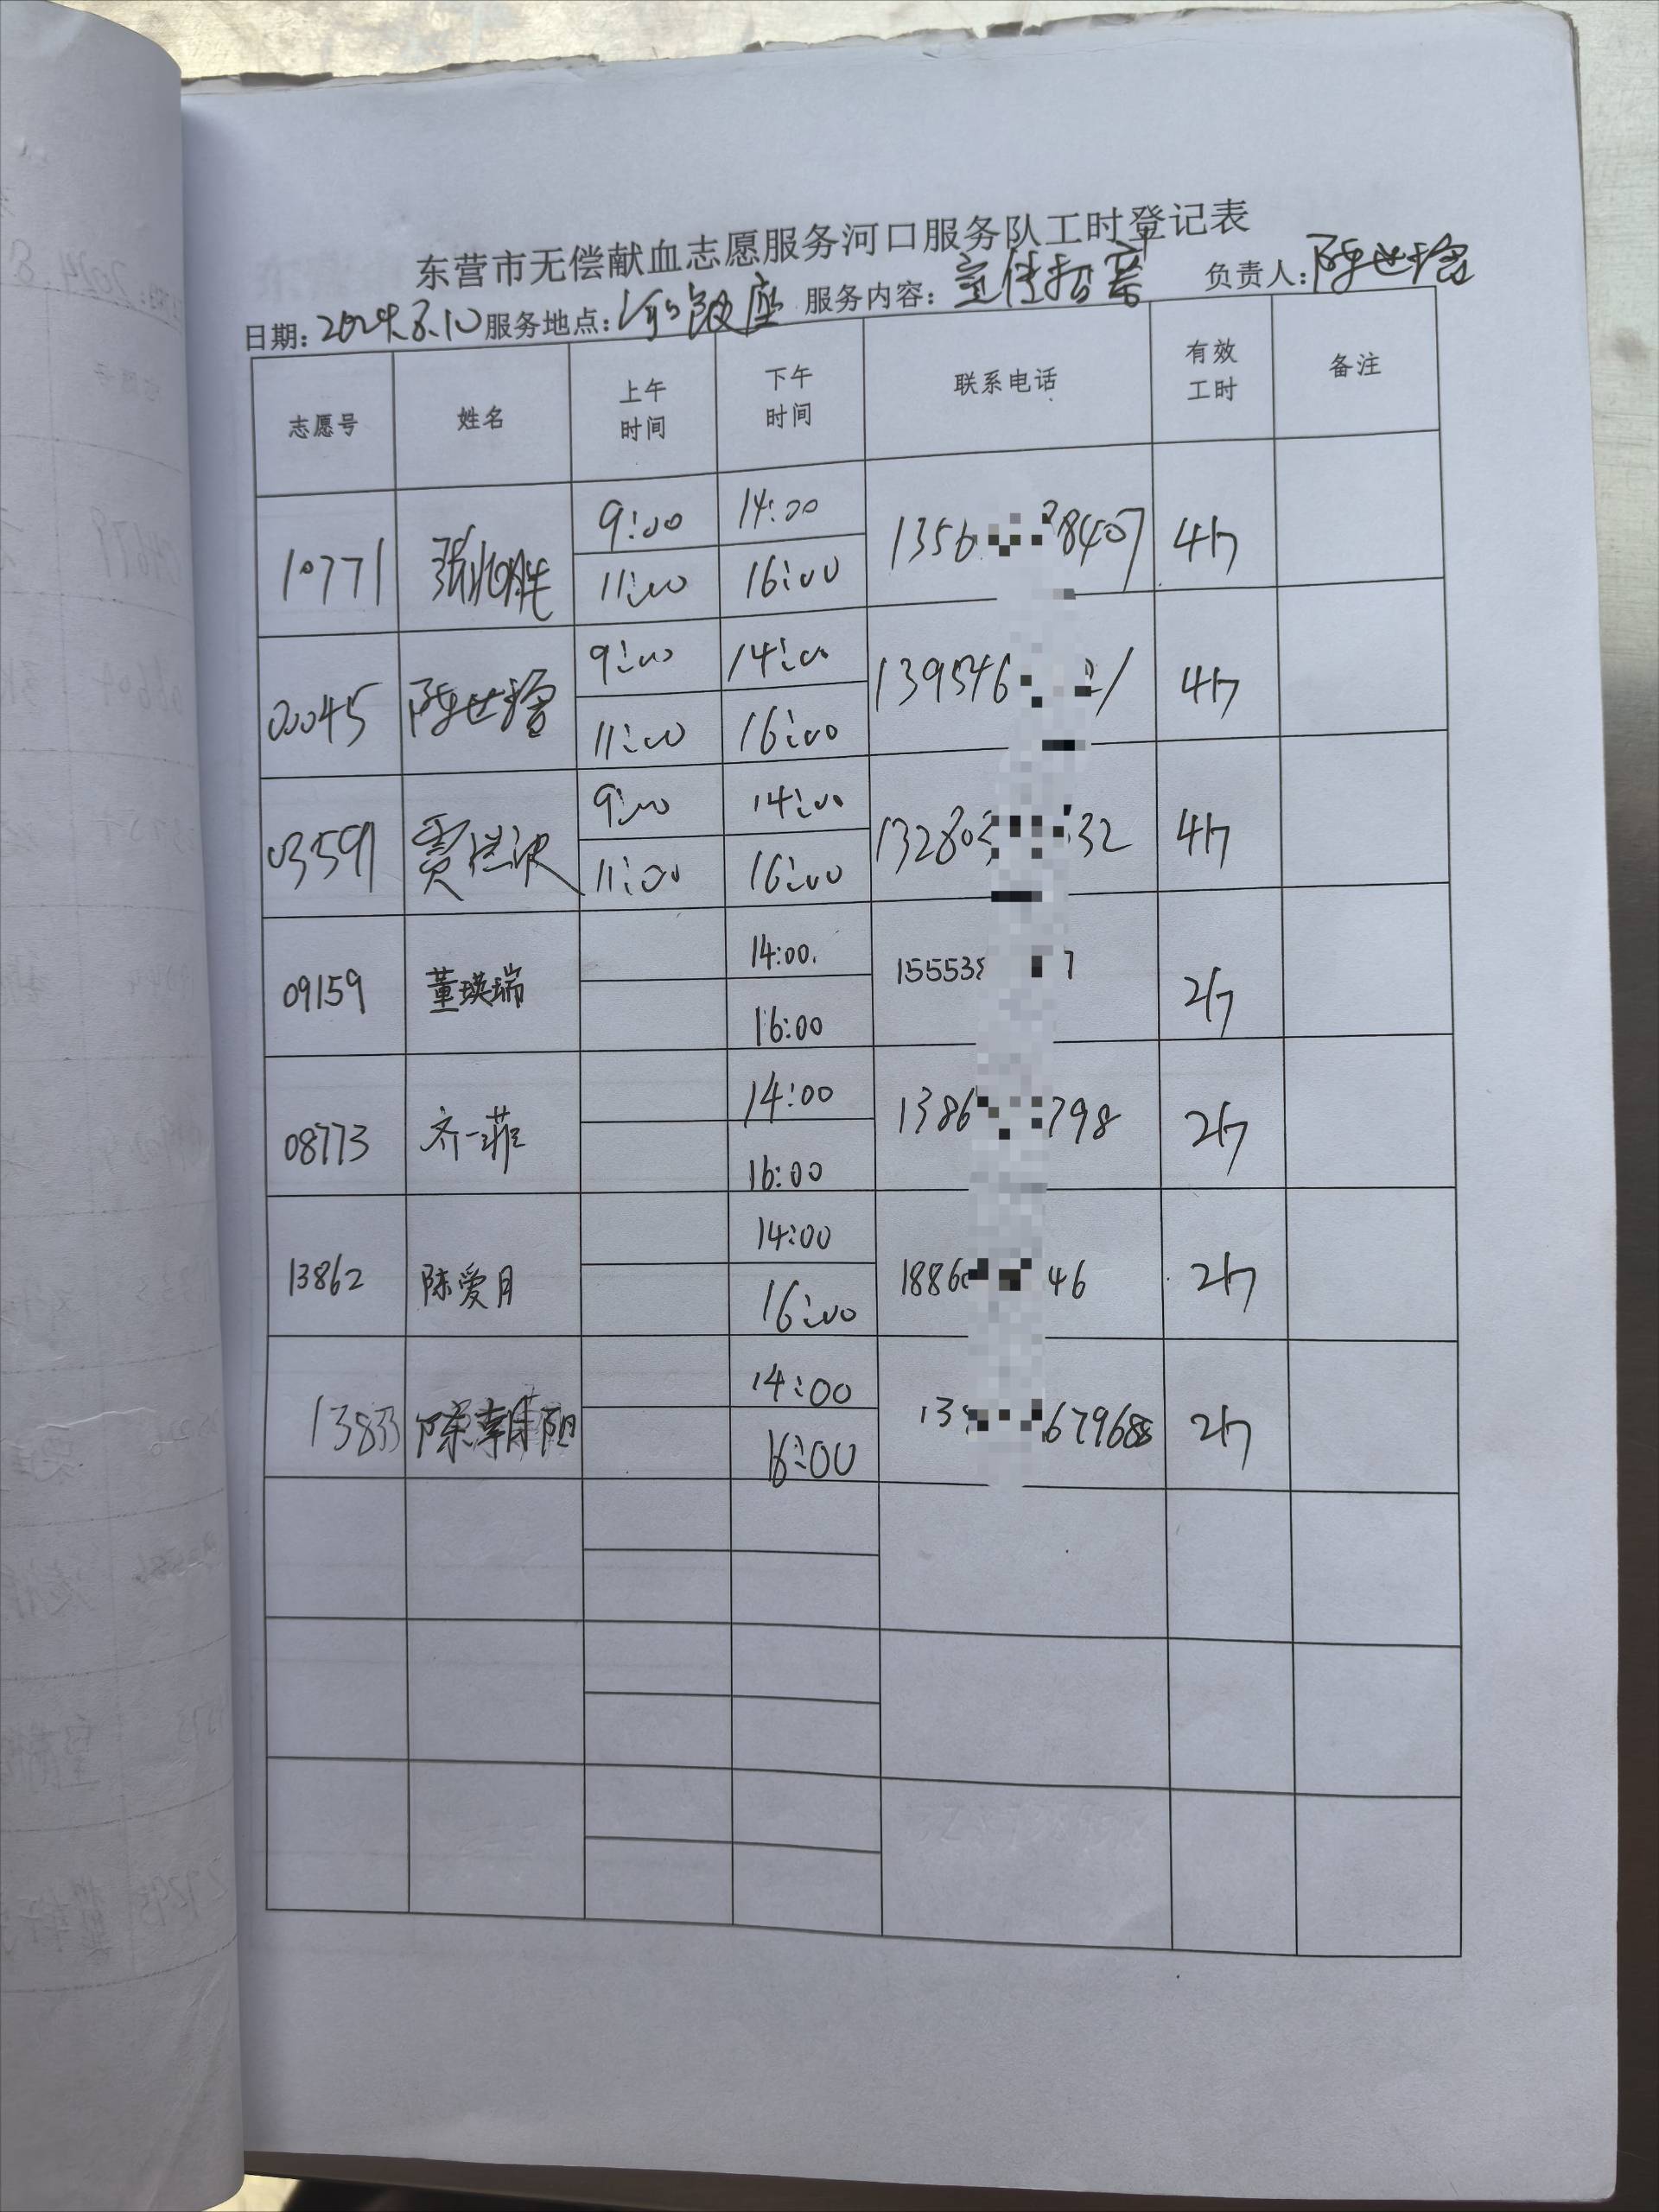 东营市无偿献血志愿服务河口服务队工时登记表
日期: 2024.8.10 服务地点: 河口银座 服务内容: 宣传招募 负责人: 陈世增
志愿号 姓名 上午时间 下午时间 联系电话 有效工时 备注
10771 9:00 14:00 1356 8407 4h
11:00 16:00
00045 陈世增 9:00 14:00 139546 4h
11:00 16:00
03591 贾 9:00 14:00 132803 32 4h
11:00 16:00
09159 董瑛瑞 14:00 15553 7 2h
16:00
08773 齐一菲 14:00 1386 798 2h
16:00
13862 陈爱月 14:00 1886 46 2h
16:00
13833 陈朝阳 14:00 13 67968 2h
16:00